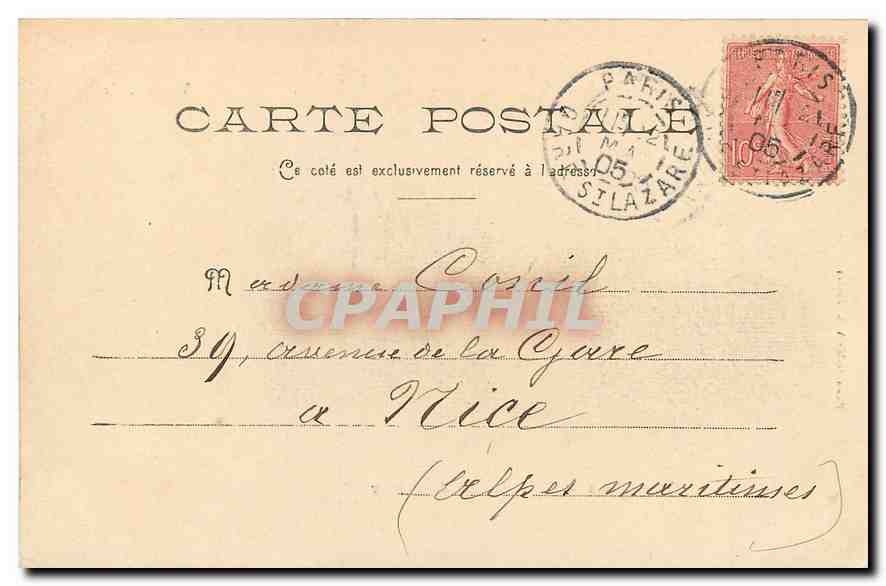 CARTE POSTALE
Ce coté est exclusivement réservé à l'adresse
PARIS
05
ST LAZARE
10
05
LAZARE
Madame Conil
CPAPHIL
39, avenue de la Gare
a Nice
(Alpes maritimes)